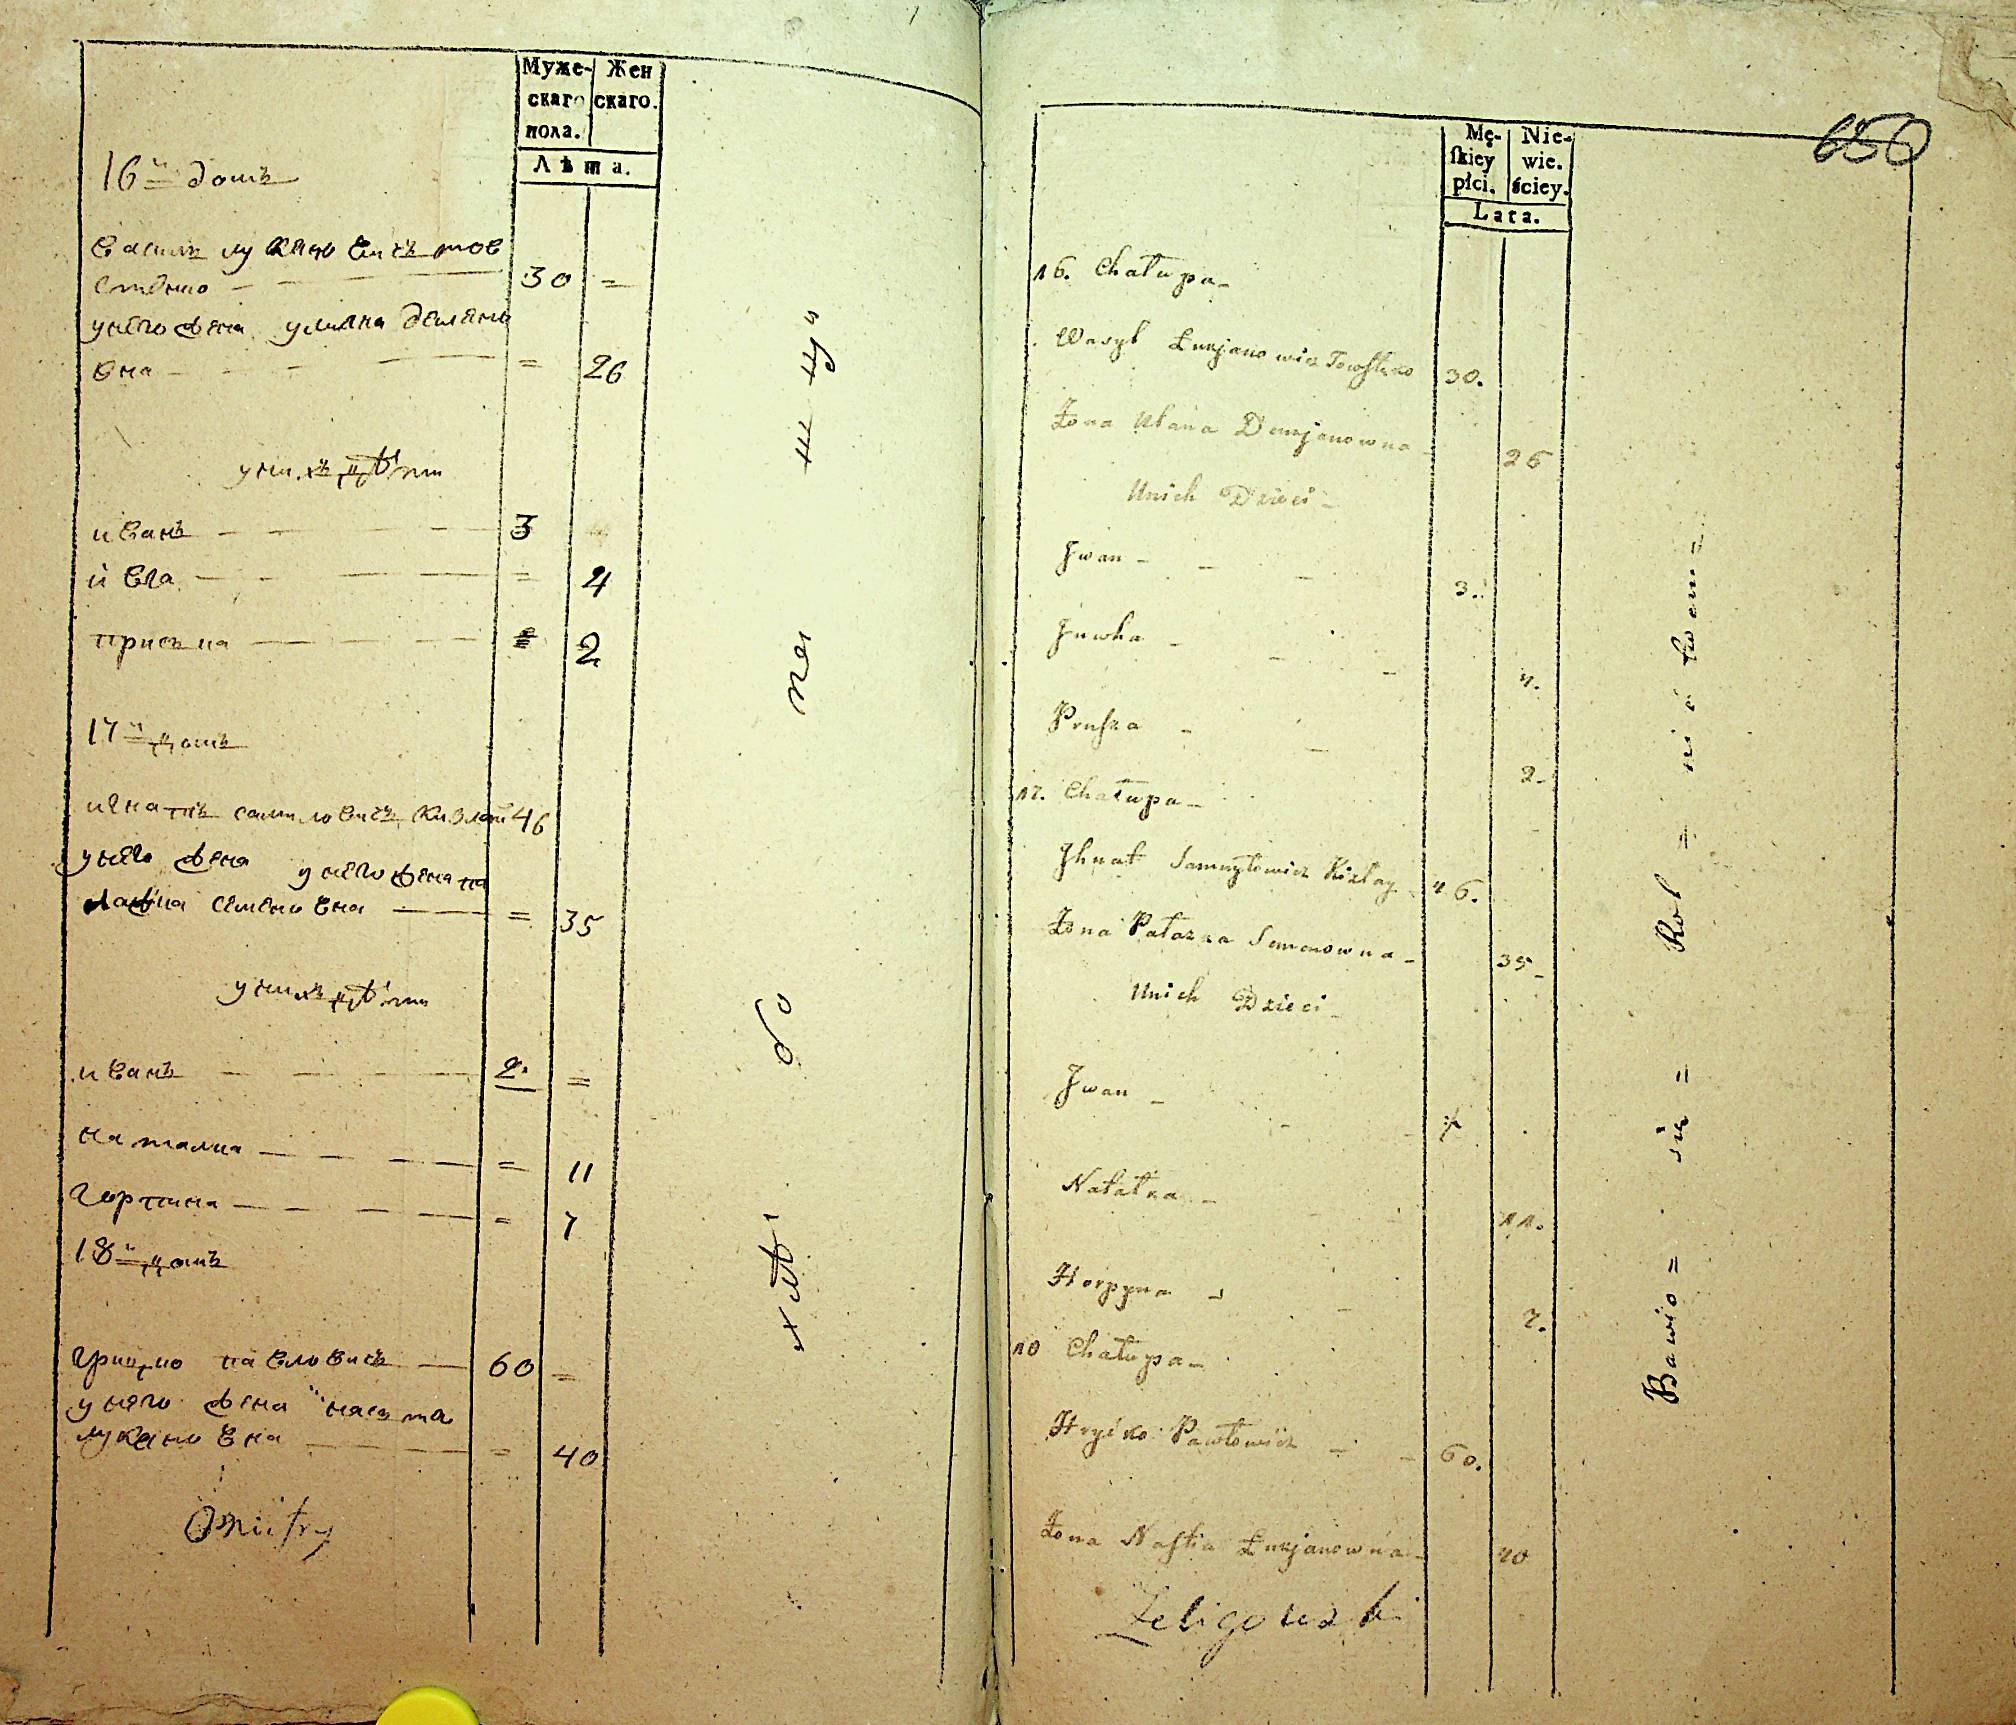 Муже-
скаго
пола.
Жен
скаго.
Лѣта.
16й домъ
василь лукяновичъ тов
стенко 30 =
унего жена улияна демяно
вна = 26
унихъ дѣти
иванъ 3
ивга = 4
приська = 2
17й домъ
игнатъ самиловичъ кизлай 46
унего жена унего жена па
лажка семеновна = 35
унихъ дѣти
иванъ 2. =
наталка = 11
горпина = 7
18й домъ
грицко павловичъ 60 =
унего жена наста
лукяновна = 40
Dmitry
хлѣ бо па ш цы
650
Mę-
skiey
płci.
Nie-
wie.
ściey.
Lata.
16. Chałupa
Wasyl Łukjanowicz Towstenko 30.
Żona Ulana Demjanowna 26
Unich Dzieci
Jwan 3.
Juwha 4.
Pruska 2
17. Chałupa
Jhnat Samuyłowicz Kizłay 46.
Żona Pałazka Semenowna 35
Unich Dzieci
Jwan
Natałka 11.
Horpyna 7.
18 Chałupa
Hryćko Pawłowicz 60.
Żona Nastia Łukjanowna 40
Żeligowski
Bawio= sie = Rol = ni ć twem =